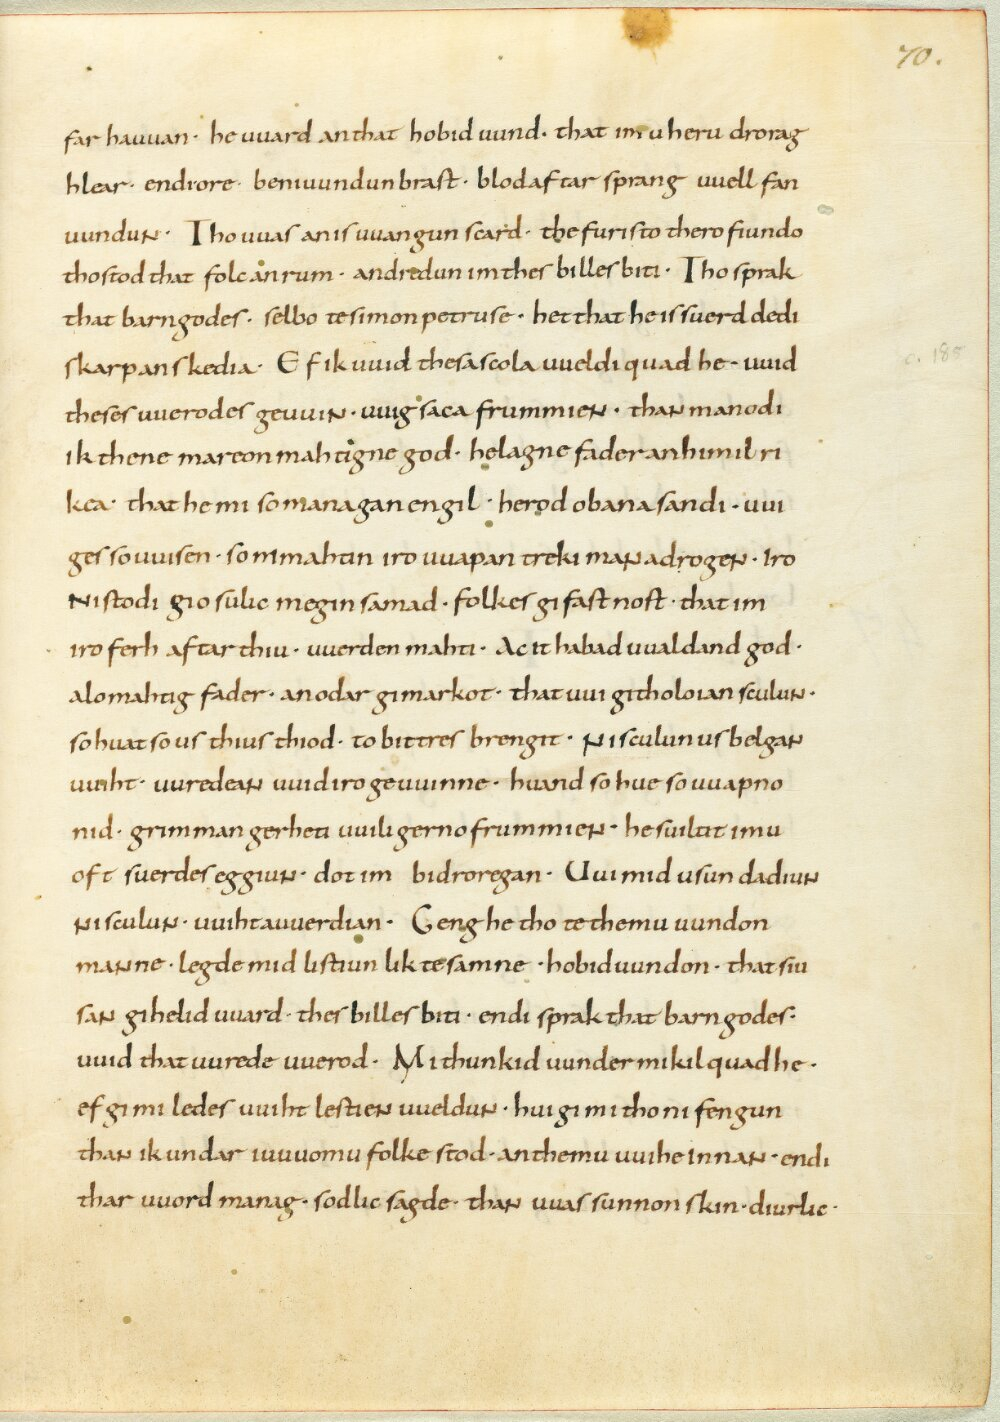 70.
far hauuan · he uuard an that hobid uund · that imu heru drorag
hlear · endi ore · beniuundun brast · blod aftar sprang uuell fan
uundun · Tho uuas an is uuangun scard · the furisto thero fiundo
tho stod that folc an rum · andredun im thes billes biti · Tho sprak
that barn godes · selbo te simon petruse · het that he is suerd dedi
skarp an skedia · Ef ik uuid thesa scola uueldi quad he · uuid
theses uuerodes geuuin · uuig saca frummien · than manodi
ik thene mareon mahtigne god · helagne fader an himilri
kea · that he mi so managan engil · herod obana sandi · uui
ges so uuisen · so ni mahtin iro uuapan treki man adrogen · Iro
ni stodi gio sulic megin samad · folkes gifastnost · that im
iro ferh aftar thiu · uuerden mahti · Ac it habad uualdand god ·
alomahtig fader · an odar gimarkot · that uui githoloian sculun ·
so huat so us thius thiod · to bittres brengit · ni sculun us belgan
uuiht · uuredean uuid iro geuuinne · huand so hue so uuapno
nid · grimman gerheti uuili gerno frummien · he suiltit imu
oft suerdes eggiun · dot im bidroregan · Uui mid usun dadiun
ni sculun · uuiht auuerdian · Geng he tho te themu uundon
manne · legde mid listiun lik tesamne · hobiduundon · that siu
san gihelid uuard · thes billes biti · endi sprak that barn godes ·
uuid that uurede uuerod · Mi thunkid uunder mikil quad he ·
ef gi mi ledes uuiht lestien uueldun · hui gi mi tho ni fengun
than ik undar iuuuomu folke stod · an themu uuihe innan · endi
thar uuord manag · sodlic sagde · than uuas sunnon skin · diurlic ·